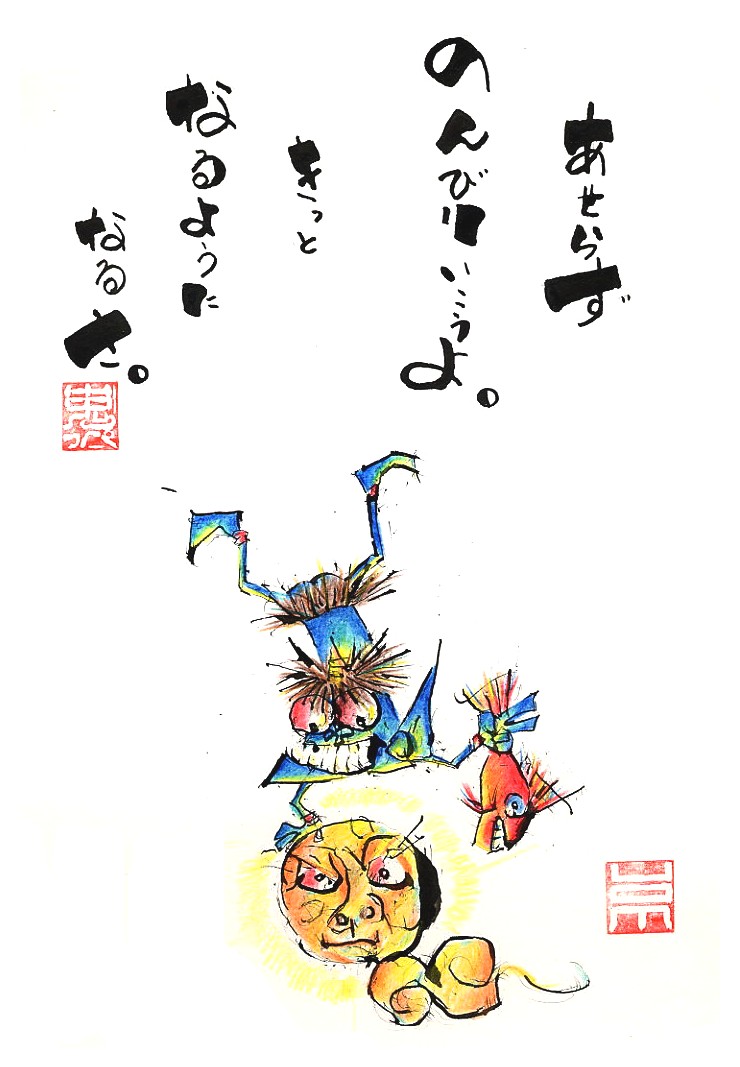 あせらず
のんびりいこうよ。
きっと
なるように
なるさ。